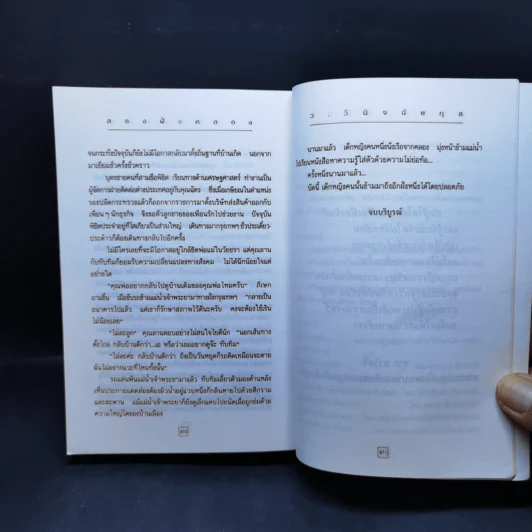 ส อ ง ฝั่ ง ค ล อ ง
จนกระทั่งปัจจุบันก็ยังไม่มีโอกาสกลับมาตั้งถิ่นฐานที่บ้านเกิด นอกจาก
มาเยี่ยมชั่วครั้งชั่วคราว
บุตรชายคนที่สามชื่อพิธิต เรียนทางด้านเศรษฐศาสตร์ ทำงานเป็น
ผู้จัดการฝ่ายติดต่อต่างประเทศอยู่กับคุณฉัตร ซึ่งเมื่อเกษียณในตำแหน่ง
รองปลัดกระทรวงแล้วก็ออกจากราชการมาตั้งบริษัทส่งสินค้าออกกับ
เพื่อนๆ นักธุรกิจ จึงขอตัวลูกชายของเพื่อนรักไปช่วยงาน ปัจจุบัน
พิธิตประจำอยู่ที่โตเกียวเป็นส่วนใหญ่ เดินทางมากรุงเทพฯ ชั่วประเดี๋ยว
ประด๋าวก็ต้องเดินทางกลับไปอีกครั้ง
ไม่มีใครเลยที่จะมีโอกาสอยู่ใกล้ชิดพ่อแม่ในวัยชรา แต่คุณลาน
กับทับทิมก็ยอมรับความเปลี่ยนแปลงทางสังคม ไม่ได้นึกน้อยใจแต่
อย่างใด
"คุณพ่ออยากกลับไปดูบ้านเดิมของคุณพ่อไหมครับ"
ถามขึ้น เมื่อขับรถข้ามแม่น้ำเจ้าพระยามาทางฝั่งกรุงเทพฯ "กลายเป็น
ธนาคารไปแล้ว แต่เขาก็รักษาสภาพไว้ดีนะครับ คงจะต้องใช้เงิน
ไม่น้อยเลย"
"ไม่ละลูก" คุณลานตอบอย่างไม่สนใจไยดีนัก "นอกเส้นทาง
ตั้งไกล กลับบ้านดีกว่า...เอ หรือว่าเธออยากดูจ๊ะ ทับทิม"
"ไม่ละค่ะ กลับบ้านดีกว่า ถึงเป็นวันหยุดก็รถติดเหมือนจะตาย
ฉันไม่อยากแวะที่ไหนทั้งนั้น"
รถแล่นพ้นแม่น้ำเจ้าพระยามาแล้ว ทับทิมเอี้ยวตัวมองด้านหลัง
เห็นประกายแดดส่องต้องผิวน้ำอยู่แวบหนึ่งก็กลืนหายไปด้วยตึกราม
และสะพาน แม้แม่น้ำเจ้าพระยาก็ยังดูเล็กแคบไปถนัดเมื่อถูกข่มด้วย
ความใหญ่โตของบ้านเมือง
ว . วิ นิ จ ฉั ย กุ ล
นานมาแล้ว เด็กหญิงคนหนึ่งนั่งเรือจากคลอง มุ่งหน้าข้ามแม่น้ำ
ไปเรียนหนังสือหาความรู้ใส่ตัวด้วยความไม่ย่อท้อ...
ครั้งหนึ่งนานมาแล้ว...
บัดนี้ เด็กหญิงคนนั้นข้ามมาถึงอีกฝั่งหนึ่งได้โดยปลอดภัย
จบบริบูรณ์